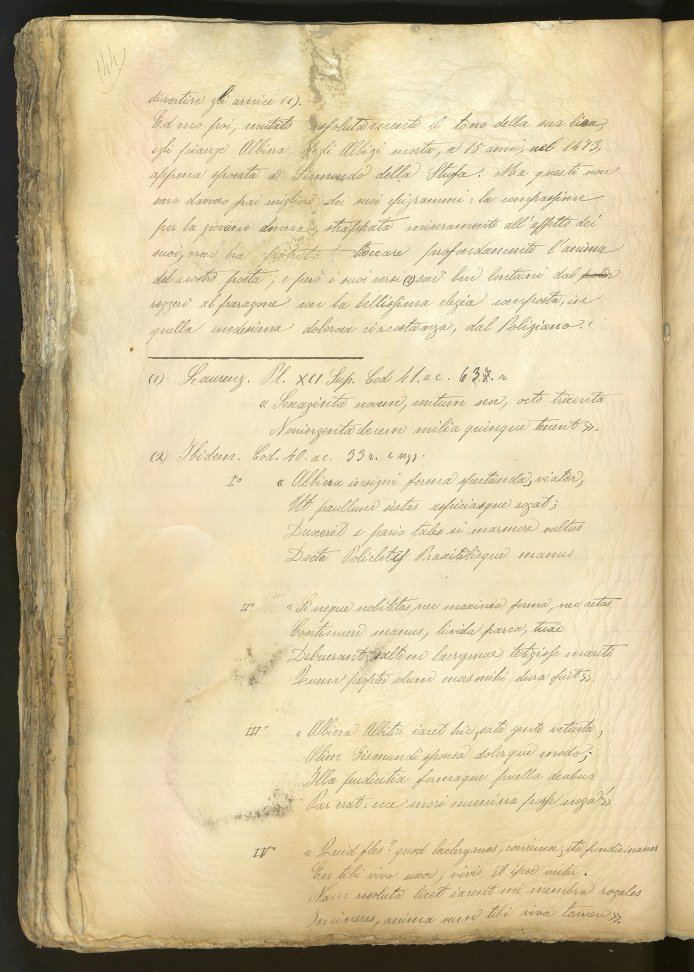 144
divertire gli amici (1).
Ed ecco poi, mutato assolutamente il tono della sua lira,
egli piange Albiera degli Albizi morta, a 15 anni, nel 1473,
appena sposata a Sismondo della Stufa. Ma questi non
sono davvero poi migliori dei suoi epigrammi: la compassione
per la giovine donna, strappata miseramente all'affetto dei
suoi, non ha potuto toccare profondamente l'anima
del nostro poeta; e però i suoi versi (2) son ben lontani dal
reggere al paragone con la bellissima elegia composta, in
quella medesima dolorosa circostanza, dal Poliziano.
(1) Laurenz. Pl. XCI Sup. Cod 41. a c. 637. r
" Sexaginta novem, centum sex, octo trecenta
Noningenta decem milia quinque
(2) Ibidem. Cod. 40. ac. 33 r. e segg.
I° « Albiera insigni forma spectanda, viator,
Ut paullum sistas aspiciasque rogat;
Duxerit e pario tales si marmore vultus
Docta Policleti Praxitelisque manus
II° « Si neque nobilitas, nec maxima forma, nec aetas
Continuere manus, livida parca, tuae
Debuerant saltem lacrymae tetigisse mariti
Quem propter solum mors mihi dura fuit ».
III° « Albiera Albitia iacet hic, sata gente vetusta,
Olim Sismundi sponsa dolorque modo;
Illa pudicitia formaque puella deabus
Par erat. ecce mori numina posse
IV° « Quid fles? quod lachrymas, coniunx, ita fundis inanes
En tibi vivo uxor, vivis et ipse mihi.
Nam resoluta licet iaceant mi membra rogales
In cineres, anima sum tibi viva tamen ».